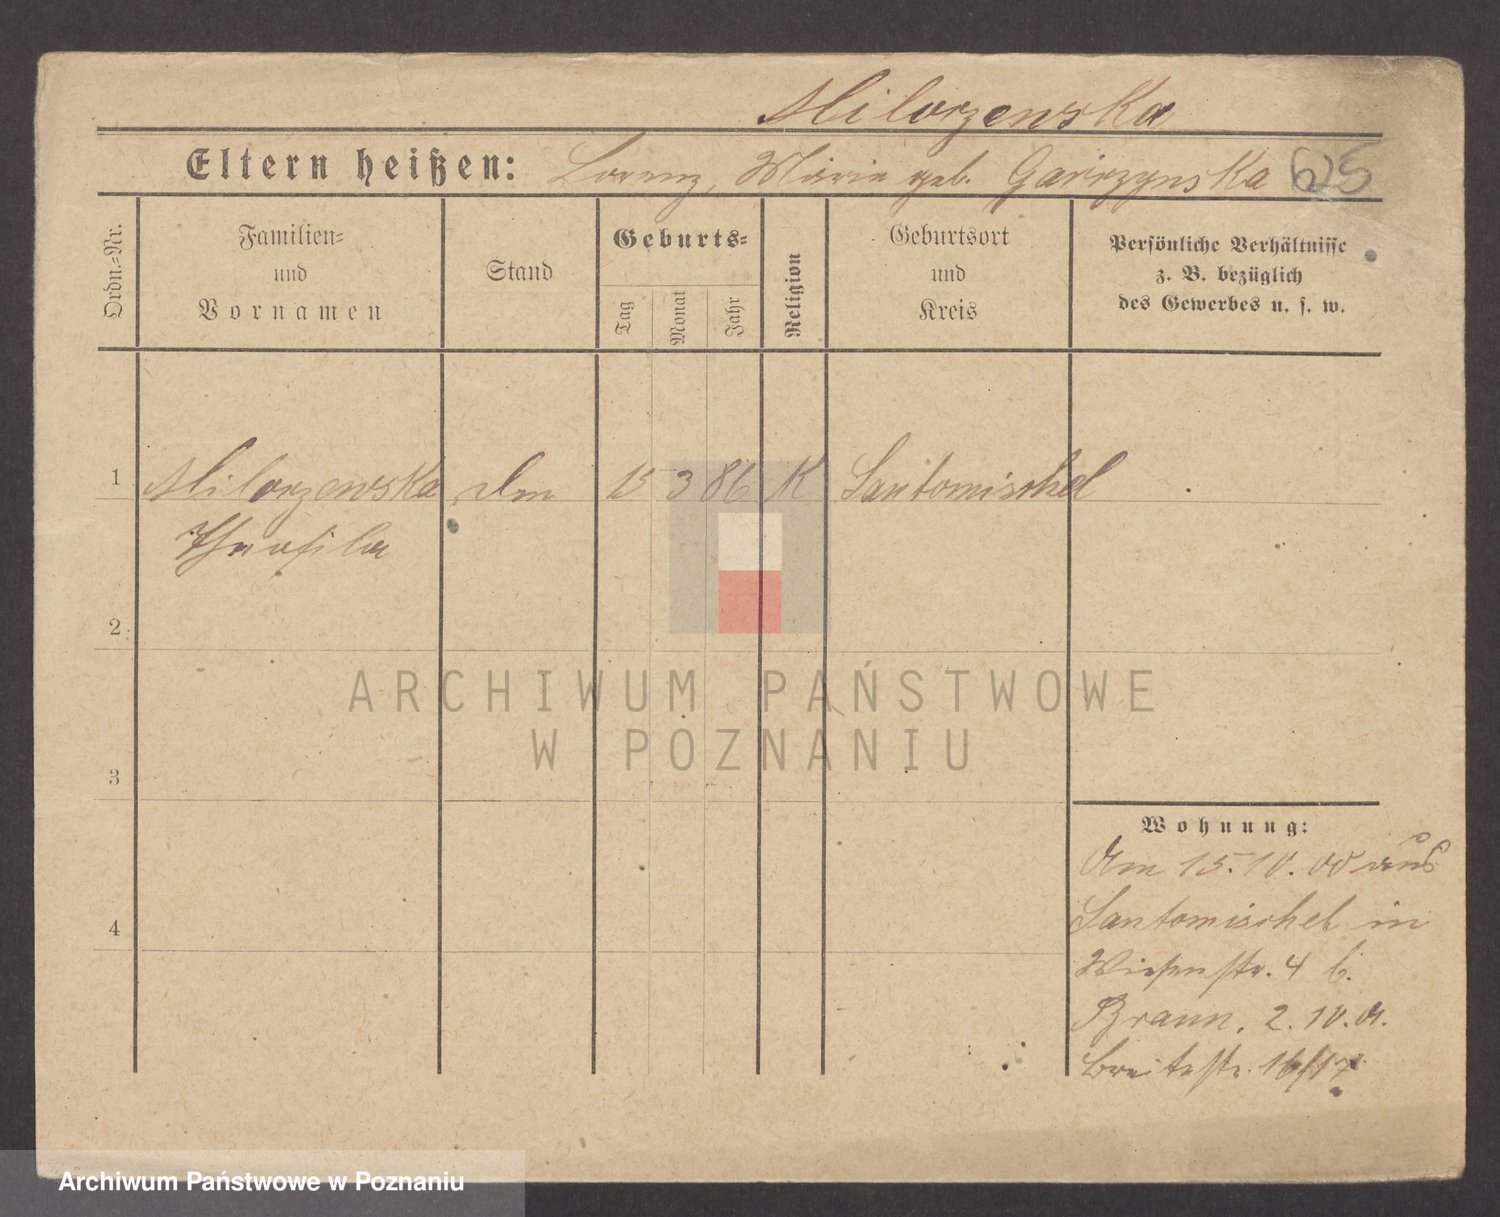 Milorzewska
Eltern heißen: Lorenz, Marie geb. Garczynska 625
Ordn.-Nr.
Familien-
und
Vornamen
Stand
Geburts-
Tag
Monat
Jahr
Religion
Geburtsort
und
Kreis
Persönliche Verhältnisse
z. B. bezüglich
des Gewerbes u. s. w.
1 Milorzewska 15 3 86 K Santomischel
Theofila
2
3
4
Wohnung:
Am 15.10.00 aus
Santomischel in
Wiesenstr. 4 b.
Braun. 2.10.01.
Breitestr. 16/17
ARCHIWUM PAŃSTWOWE
W POZNANIU
Archiwum Państwowe w Poznaniu